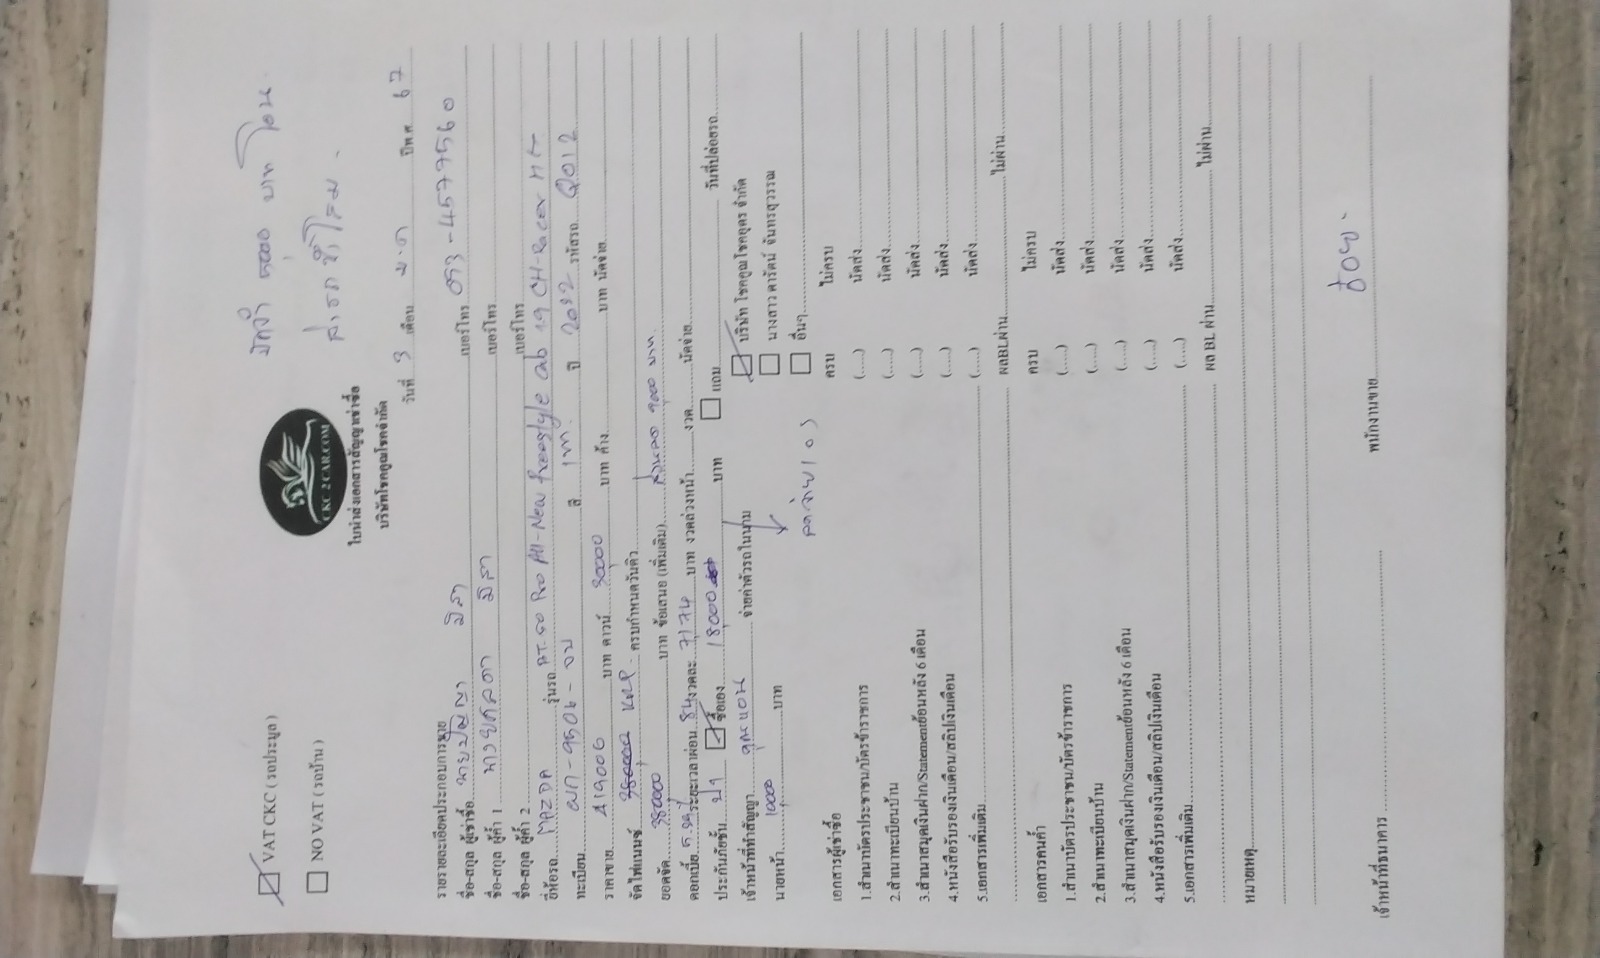 มัดจำ 5000 บาท โอน
CKC 2 CAR.COM
☑ VAT CKC ( รถประมูล )
☐ NO VAT ( รถบ้าน )
ใบนำส่งเอกสารสัญญาเช่าซื้อ
บริษัทโชคคูณโชคจำกัด
วันที่ 3 เดือน ม.ค ปีพ.ศ. 67
รายรายละเอียดประกอบการขาย
ชื่อ-สกุล ผู้เช่าซื้อ นาย เบอร์โทร 093-4577560
ชื่อ-สกุล ผู้ค้ำ 1 เบอร์โทร
ชื่อ-สกุล ผู้ค้ำ 2 เบอร์โทร
ยี่ห้อรถ MAZDA รุ่นรถ BT-50 Pro All-New Freestyle Cab 19 CH-Racer
ทะเบียน สี เทา ปี 2012 รหัสรถ Q012
ราคาขาย 419000 บาท ดาวน์ 30000 บาท ค้าง บาท นัดจ่าย
จัดไฟแนนซ์ KKP ครบกำหนดวันคิว
ยอดจัด 380000 บาท ข้อเสนอ (เพิ่มเติม) ส่วนลด 9000 บาท
ดอกเบี้ย ระยะเวลาผ่อน 84 งวดละ 7174 บาท งวดล่วงหน้า งวด นัดจ่าย
ประกันภัยชั้น ☑ ซื้อเอง 18000 บาท ☐ แถม วันที่ปล่อยรถ
เจ้าหน้าที่ทำสัญญา จ่ายค่าตัวรถในนาม ☑ บริษัท โชคคูณโชคยูคร จำกัด
นายหน้า 10000 บาท ☐ นางสาว ดารัตน์ จันทรสุวรรณ
☐ อื่นๆ
เอกสารผู้เช่าซื้อ ครบ ไม่ครบ
1.สำเนาบัตรประชาชน/บัตรข้าราชการ (.....) นัดส่ง
2.สำเนาทะเบียนบ้าน (.....) นัดส่ง
3.สำเนาสมุดเงินฝาก/Statementย้อนหลัง 6 เดือน (.....) นัดส่ง
4.หนังสือรับรองเงินเดือน/สลิปเงินเดือน (.....) นัดส่ง
5.เอกสารเพิ่มเติม (.....) นัดส่ง
ผลBLผ่าน ไม่ผ่าน
เอกสารคนค้ำ ครบ ไม่ครบ
1.สำเนาบัตรประชาชน/บัตรข้าราชการ (.....) นัดส่ง
2.สำเนาทะเบียนบ้าน (.....) นัดส่ง
3.สำเนาสมุดเงินฝาก/Statementย้อนหลัง 6 เดือน (.....) นัดส่ง
4.หนังสือรับรองเงินเดือน/สลิปเงินเดือน (.....) นัดส่ง
5.เอกสารเพิ่มเติม (.....) นัดส่ง
ผล BL ผ่าน ไม่ผ่าน
หมายเหตุ
เจ้าหน้าที่ธนาคาร พนักงานขาย